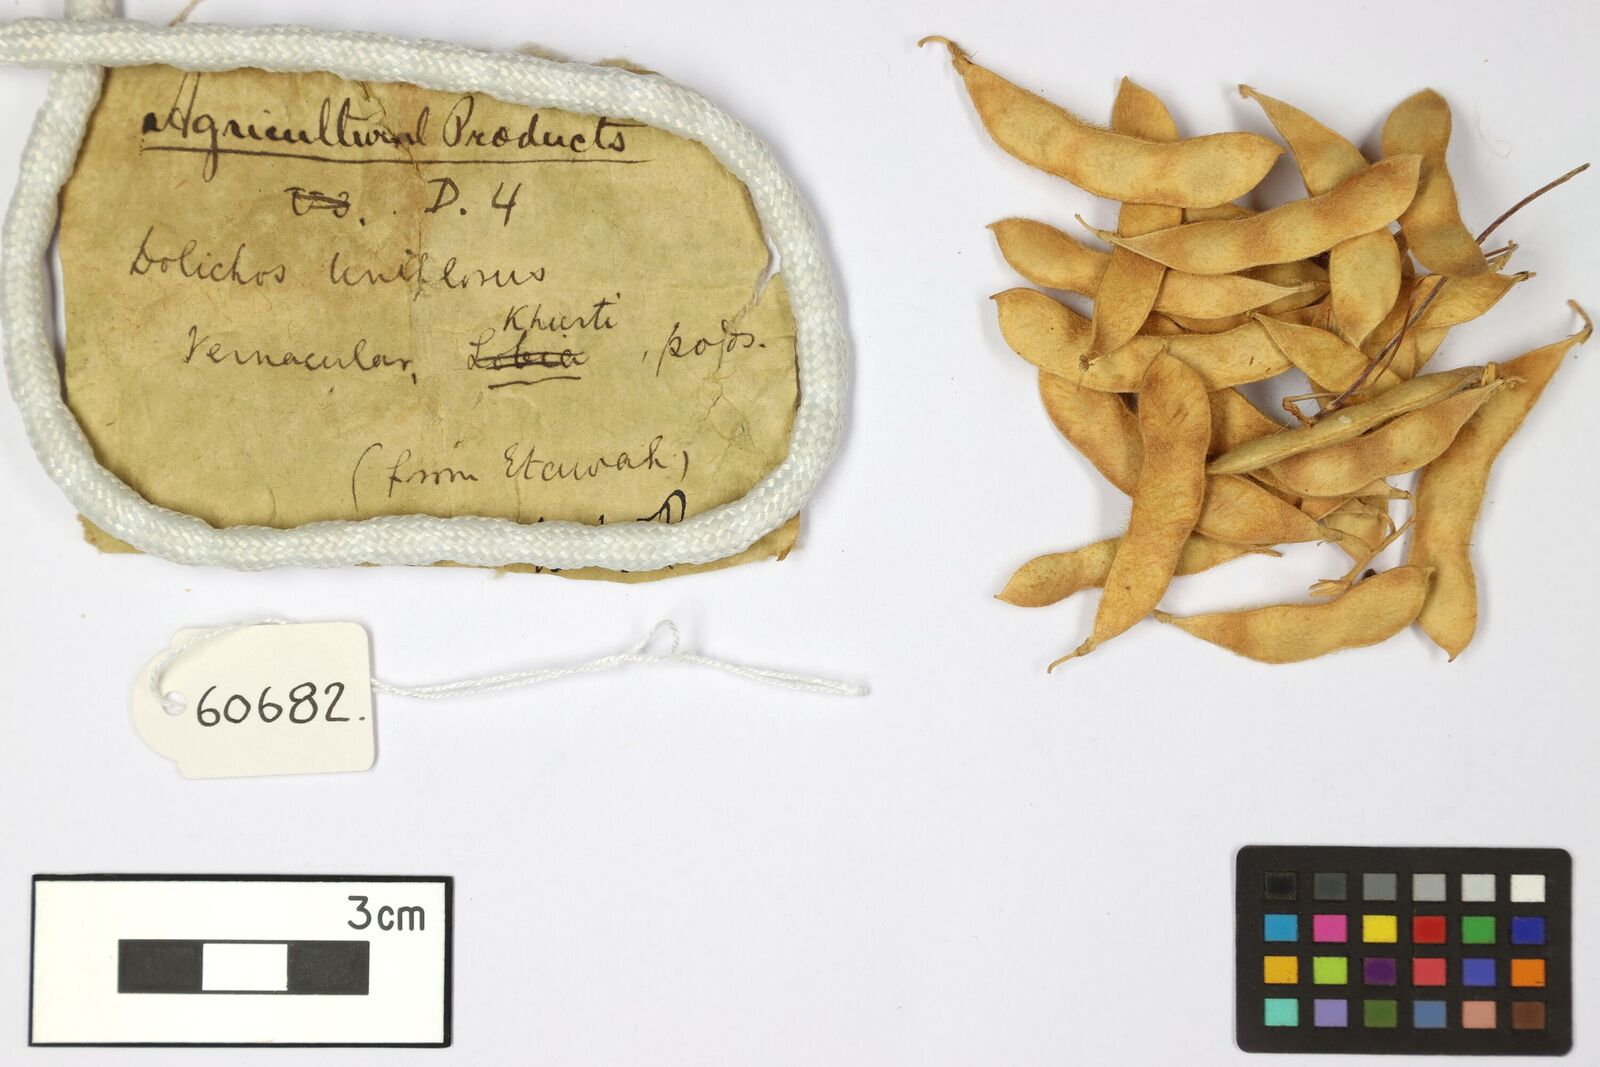 Agricultural Products
D. 4
Dolichos Uniflorus
Khurti
Vernacular, Lobia, pods.
(from Etawah)
60682.
3cm